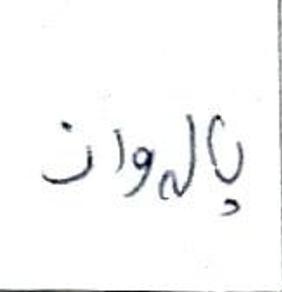 پالەوان